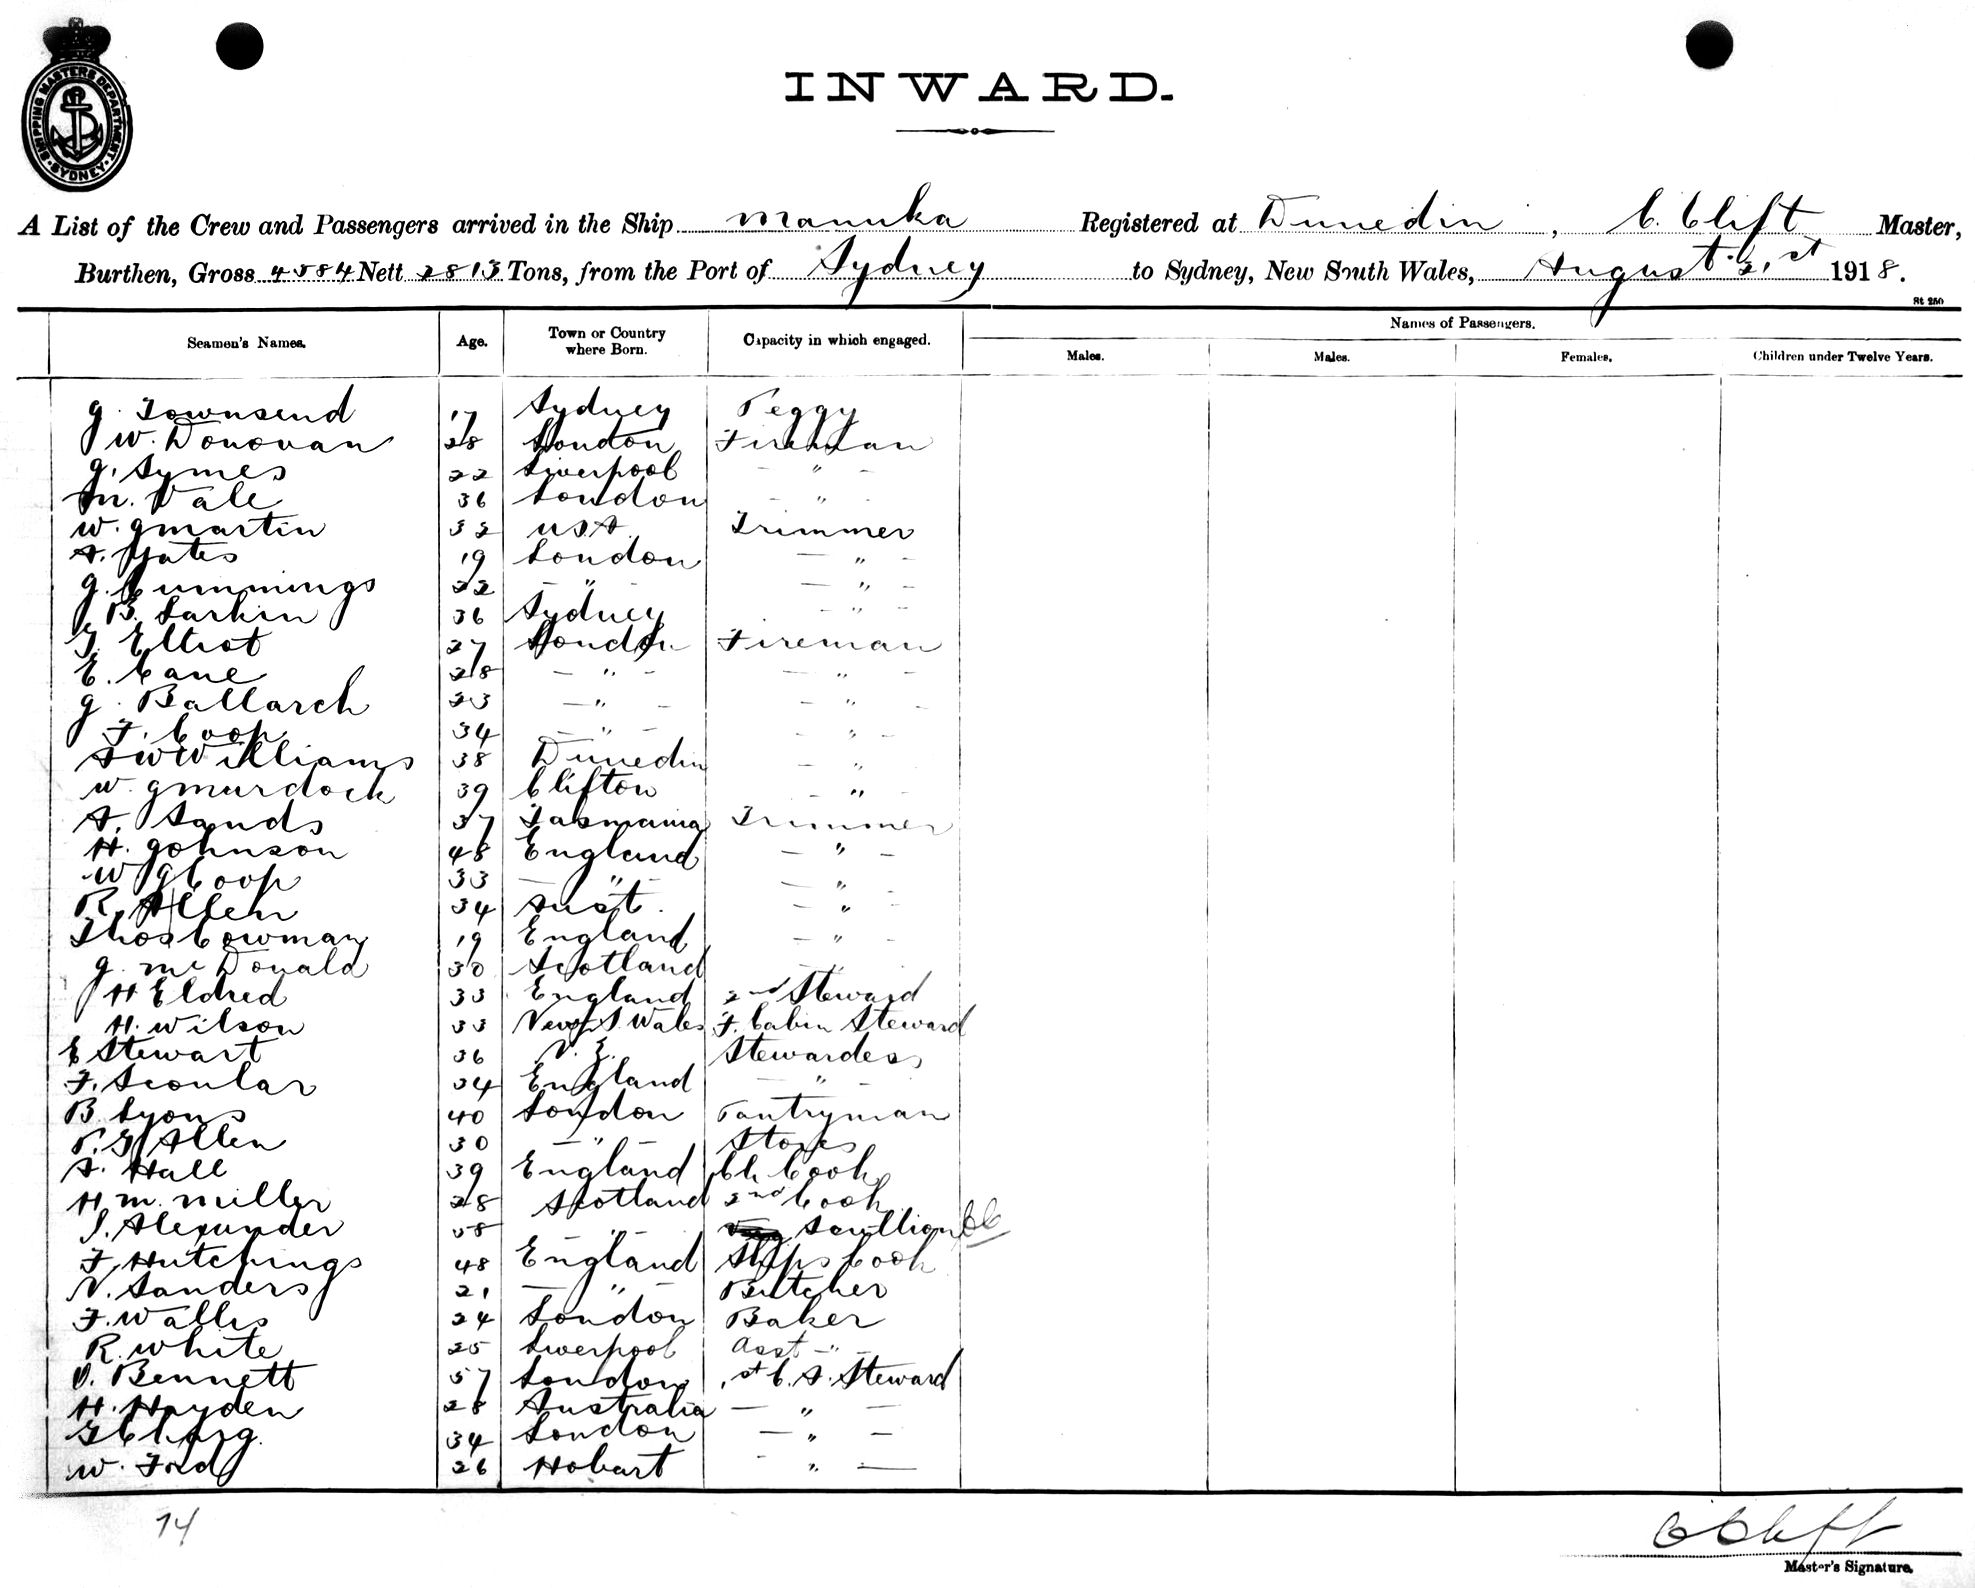 SHIPPING MASTERS DEPARTMENT · SYDNEY ·
INWARD.
A List of the Crew and Passengers arrived in the Ship Manuka Registered at Dunedin, C. Clift Master,
Burthen, Gross 4584 Nett 2813 Tons, from the Port of Sydney to Sydney, New South Wales, August 21st 1918.
St 250
Seamen's Names. Age. Town or Country where Born. Capacity in which engaged. Names of Passengers.
Males. Males. Females. Children under Twelve Years.
J. Townsend 17 Sydney Peggy
J W. Donovan 28 London Fireman
J. Symes 22 Liverpool - " -
M. Vale 36 London - " -
W. J Martin 32 USA. Trimmer
A. Yates 19 London - " -
J. Cummings 22 - " - - " -
J B. Larkin 36 Sydney - " -
G. Elliot 27 London Fireman
E. Cane 28 - " - - " -
J. Ballarch 23 - " - - " -
J F. Coop 34 - " - - " -
A W Williams 38 Dunedin - "
W. J Murdock 39 Clifton - " -
A. Sands 37 Tasmania Trimmer
H. Johnson 48 England - " -
W J Coop 33 - " - - " -
R. Allen 34 Aust. - " -
Thos Cowman 19 England - " -
J. McDonald 30 Scotland
J H Eldred 33 England 2nd Steward
H. Wilson 33 New S. Wales F. Cabin Steward
E Stewart 36 N. Z. Stewardess
F. Scoular 34 England - " -
B. Lyons 40 London Pantryman
P. G Allen 30 - " - Stores
A. Hall 39 England Ch. Cook
H M. Miller 28 Scotland 2nd Cook
J. Alexander 58 - " - Scullion CC
F Hutchings 48 England Ships Cook
N. Sanders 21 - " - Butcher
F. Wallis 24 London Baker
R. White 25 Liverpool Asst - " -
V. Bennett 57 London 1st C. S. Steward
H. Hayden 28 Australia - " -
G Clarg. 34 London - " -
W. Ford 26 Hobart - " -
74
C Clift
Master's Signature.